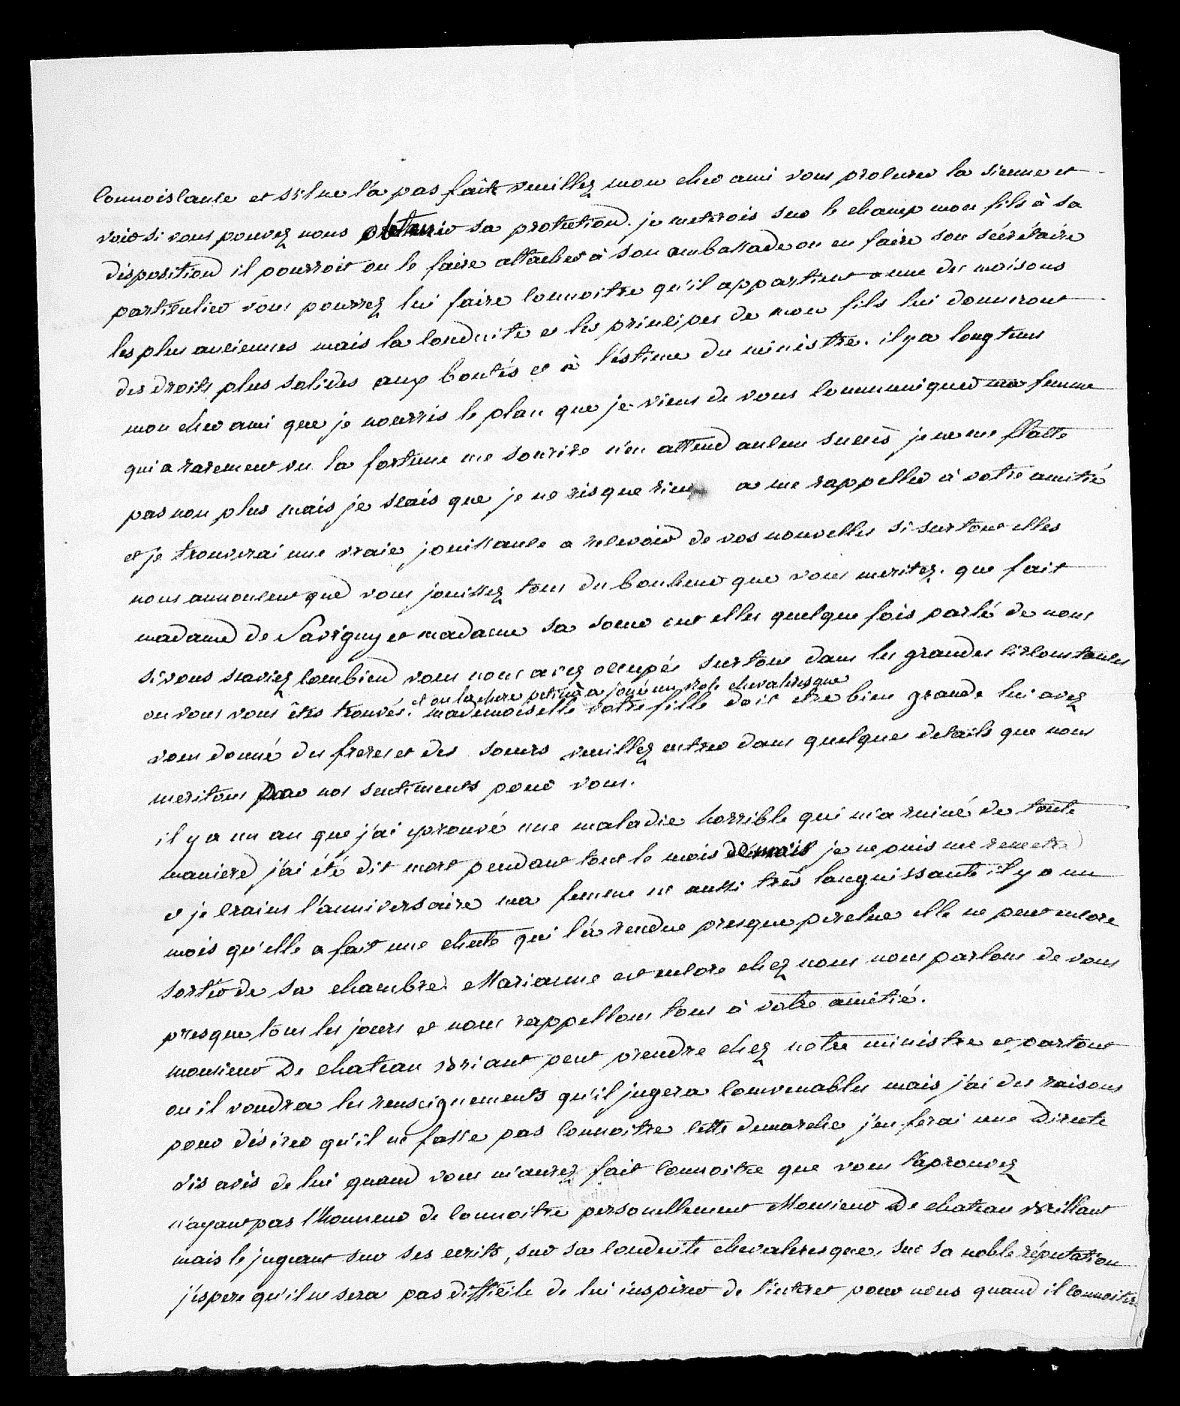 connoissance et s'il ne l'a pas fait veuillez mon cher ami vous procurer la sienne et
voir si vous pouvez nous obtenir sa protection. je mettrois sur le champ mon fils à sa
disposition il pourroit ou le faire attacher à son ambassade ou en faire son sécrétaire
particulier vous pourrez lui faire connoitre qu'il appartient a une des maisons
les plus anciennes mais la conduite et les principes de mon fils lui donneront
des droits plus solides aux bontés et à l'éstime du ministre. il y a longtems
mon cher ami que je nourris le plan que je viens de vous communiquer ma femme
qui a rarement vu la fortune me sourire n'en attend aucun succès je ne me flatte
pas non plus mais je scais que je ne risque rien a me rappeller à votre amitié
et je trouverai une vraie jouissance a recevoir de vos nouvelles si surtout elles
nous annoncent que vous jouissez tous du bonheur que vous meritez. que fait
madame de Savigny et madame sa soeur ont elles quelque fois parlé de nous
si vous scaviez combien vous nous avez occupés surtout dans les grandes circonstances
et ou la chere petite a joué un role chevaleresque
ou vous vous êtes trouvés. mademoiselle votre fille doit etre bien grande lui avez
vous donné des freres et des soeurs veuillez entrer dans quelques details que nous
meritons par nos sentiments pour vous.
il y a un an que j'ai eprouvé une maladie horrible qui m'a ruiné de toute
maniere j'ai été dit mort pendant tout le mois de mais je ne puis me remettre
et je crains l'anniversaire ma femme est aussi très languissante il y a un
mois qu'elle a fait une chute qui l'a rendue presque percluse elle ne peut encore
sortir de sa chambre. Marianne est encore chez nous nous parlons de vous
presque tous les jours et nous rappellons tous à votre amitié.
monsieur De chateau briant peut prendre chez notre ministre et partout
ou il voudra les renseignements qu'il jugera convenables mais j'ai des raisons
pour désirer qu'il ne fasse pas connoitre cette demarche j'en ferai une directe
vis avis de lui quand vous m'aurez fait connoitre que vous l'aprouvez
n'ayant pas l'honneur de connoitre personellement Monsieur De chateau brillant
mais le jugeant sur ses ecrits, sur sa conduite chevaleresque, sur sa noble réputation
j'espere qu'il ne sera pas difficile de lui inspirer de l'interet pour nous quand il connoitra